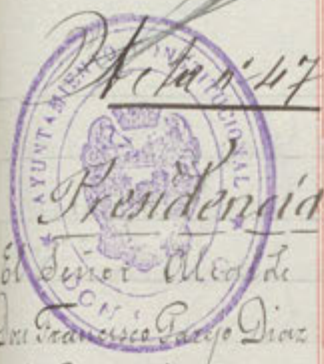 Acta nº 47
AYUNTAMIENTO CONSTITUCIONAL
Presidencia
El Señor Alcalde
Don Francisco Parejo Diaz